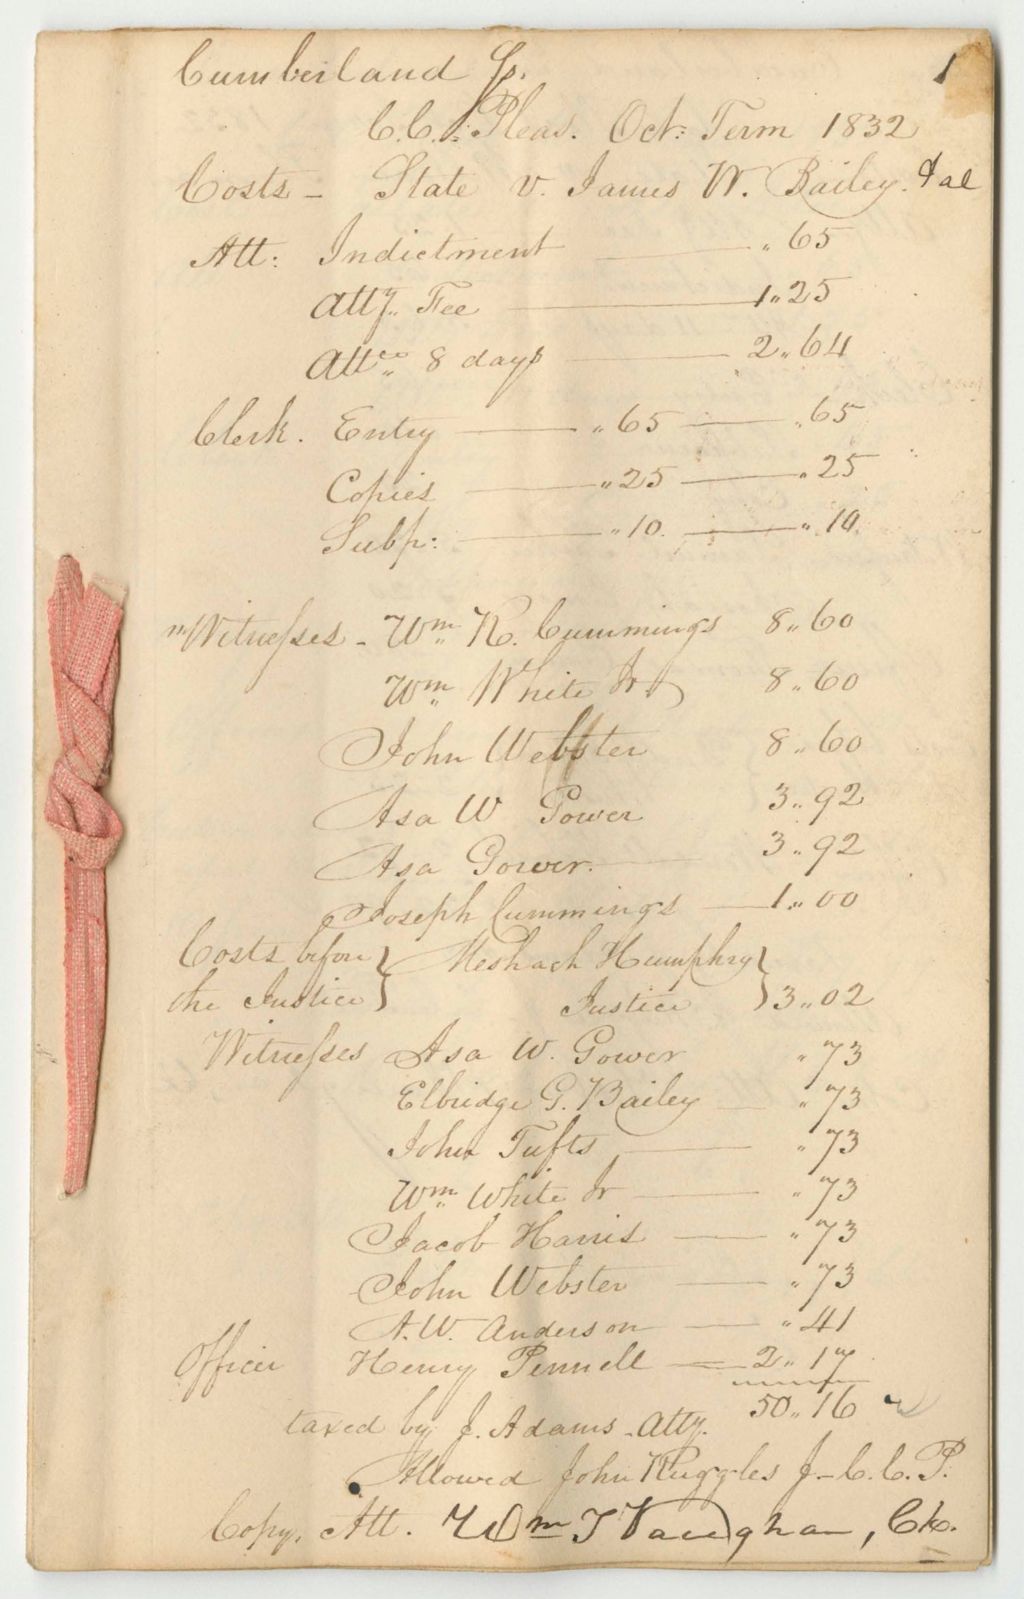 Cumberland Ss. 1
C.C. Pleas. Oct: Term 1832
Costs - State v. James W. Bailey. & al
Att: Indictment " 65
Atty. Fee 1 " 25
Attce 8 days 2 " 64
Clerk. Entry " 65 " 65
Copies " 25 " 25
Subp: " 10. " 10.
Witnesses - Wm K. Cummings 8 " 60
Wm White Jr 8 " 60
John Webster 8 " 60
Asa W Gower 3 " 92
Asa Gower. 3 " 92
Joseph Cummings 1 " 00
Costs before } Meshach Humphry }
the Justice } Justice } 3 " 02
Witnesses Asa W. Gower " 73
Elbridge G. Bailey " 73
John Tufts " 73
Wm White Jr " 73
Jacob Harris " 73
John Webster " 73
A. W. Anderson " 41
Officer Henry Pennell 2 " 17
50 " 16
taxed by J. Adams - Atty.
Allowed John Ruggles J - C. C. P.
Copy. Att. Wm T Vaughan, Ck.